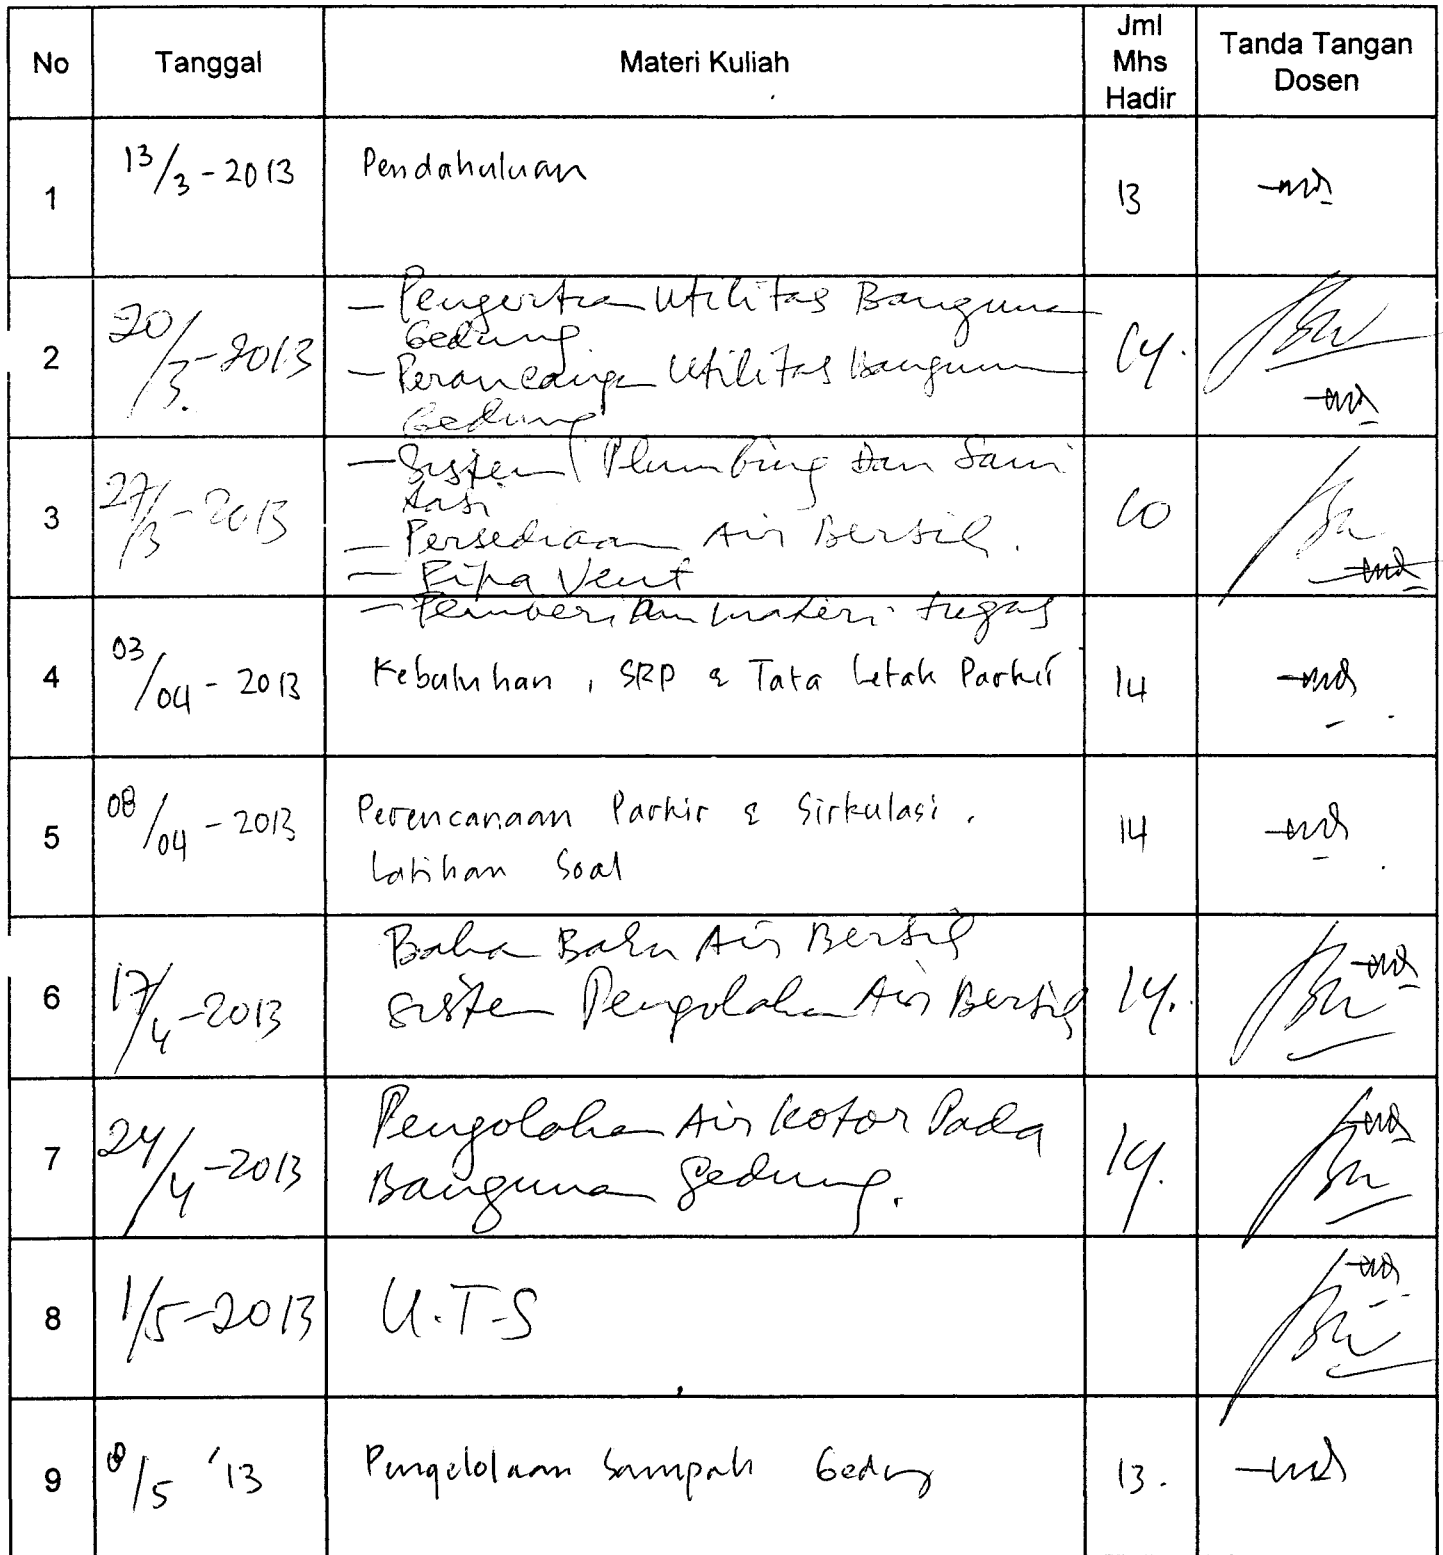 No Tanggal Materi Kuliah Jml Mhs Hadir Tanda Tangan Dosen
1 13/3 - 2013 Pendahuluan 13
2 20/3 - 2013 - Pengertian Utilitas Bangunan
Gedung
- Perancangan Utilitas Bangunan
Gedung 14.
3 27/3 - 2013 - Sistem Plumbing dan Sani
tasi
- Persediaan Air Bersih.
- Pipa Vent
- Pemberian materi tugas 10
4 03/04 - 2013 Kebutuhan, SRP & Tata Letak Parkir 14
5 08/04 - 2013 Perencanaan Parkir & Sirkulasi.
Latihan Soal 14
6 17/4 - 2013 Bahan Baku Air Bersih
Sistem Pengolahan Air Bersih 14.
7 24/4 - 2013 Pengolahan Air Kotor Pada
Bangunan Gedung. 14.
8 1/5 - 2013 U.T-S
9 8/5 '13 Pengelolaan Sampah Gedung 13.